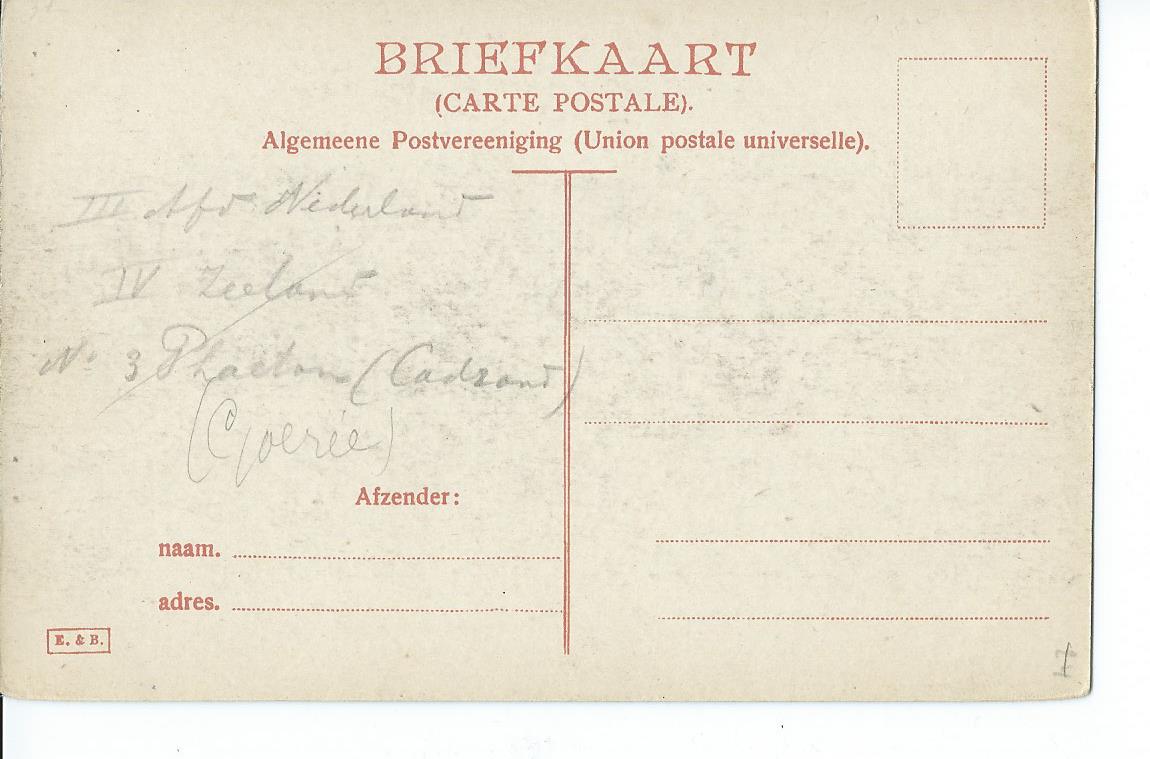 BRIEFKAART
(CARTE POSTALE).
Algemeene Postvereeniging (Union postale universelle).
III Afd Nederland
IV Zeeland
No 3 Phaeton (Cadzand)
(Goerée)
Afzender:
naam.
adres.
E. & B.